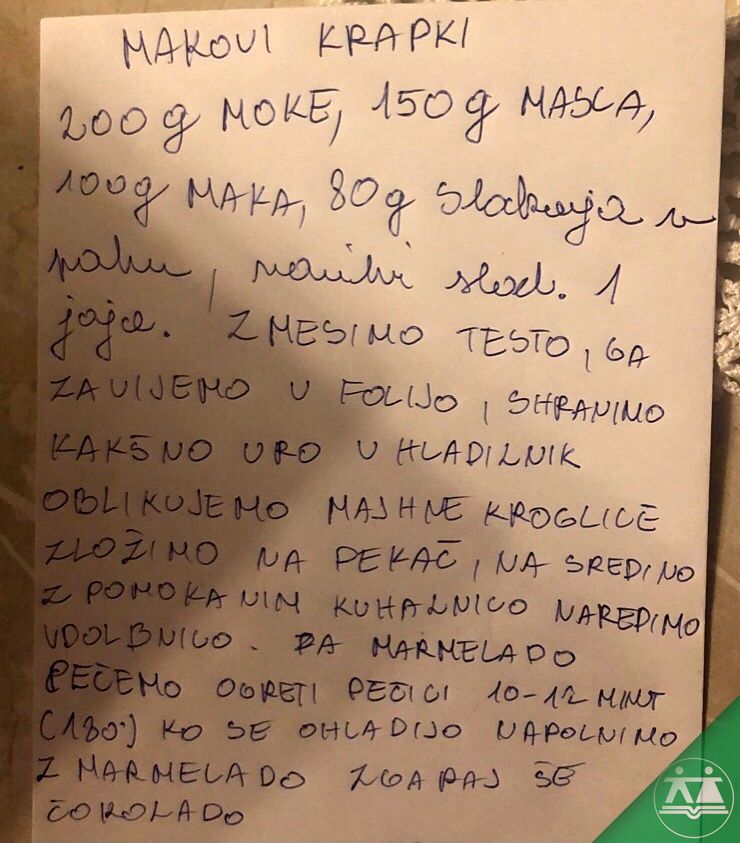 MAKOVI KRAPKI
200g MOKE, 150g MASLA,
100g MAKA, 80g sladkorja v
prahu, vanili slad. 1
jajce. ZMESIMO TESTO, GA
ZAVIJEMO V FOLIJO, SHRANIMO
KAKŠNO URO V HLADILNIK
OBLIKUJEMO MAJHNE KROGLICE
ZLOŽIMO NA PEKAČ, NA SREDINO
Z POMOKANIM KUHALNICO NAREDIMO
VDOLBNICO. ZA MARMELADO
PEČEMO OGRETI PEČICI 10-12 MINT
(180°) KO SE OHLADIJO NAPOLNIMO
Z MARMELADO ZGARAJ ŠE
ČOKOLADO